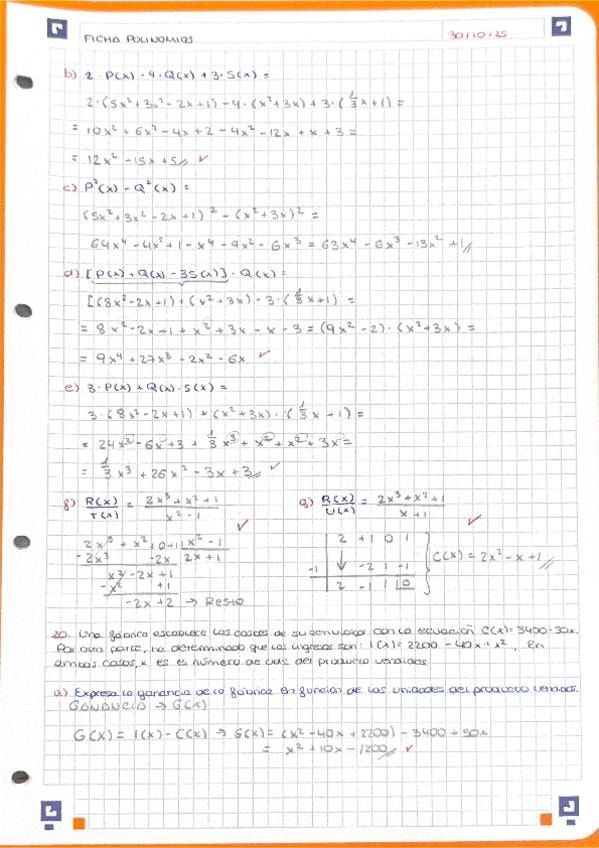 FICHA POLINOMIOS 30/10/25
b) 2·P(x) - 4·Q(x) + 3·S(x) =
2·(5x² + 3x² - 2x + 1) - 4·(x² + 3x) + 3·(1/3 x + 1) =
= 10x² + 6x² - 4x + 2 - 4x² - 12x + x + 3 =
= 12x² - 15x + 5 ✓
c) P²(x) - Q²(x) =
(5x² + 3x² - 2x + 1)² - (x² + 3x)² =
64x⁴ - 4x² + 1 - x⁴ - 9x² - 6x³ = 63x⁴ - 6x³ - 13x² + 1
d) [P(x) + Q(x) - 3S(x)]·Q(x) =
[(8x² - 2x + 1) + (x² + 3x) - 3·(1/3 x + 1) =
= 8x² - 2x + 1 + x² + 3x - x - 3 = (9x² - 2)·(x² + 3x) =
= 9x⁴ + 27x³ - 2x² - 6x ✓
e) 3·P(x) + Q(x)·S(x) =
3·(8x² - 2x + 1) + (x² + 3x)·(1/3 x + 1) =
= 24x² - 6x + 3 + 1/3 x³ + x² + x² + 3x =
= 1/3 x³ + 26x² - 3x + 3 ✓
f) R(x)/T(x) = 2x³ + x² + 1 / x² - 1
g) R(x)/U(x) = 2x³ + x² + 1 / x + 1
✓ ✓
2x³ + x² + 0 + 1 | x² - 1
- 2x³ -2x 2x + 1
x² - 2x + 1
- x² + 1
- 2x + 2 → Resto
2 +1 0 1
↓ -2 1 -1
-1
2 -1 1 |0
C(x) = 2x² - x + 1
20. Una fábrica establece los costes de su con la ecuación C(x) = 3400 - 30x.
Por otra parte, ha determinado que los ingresos son: I(x) = 2200 - 40x + x². En
ambos casos, x es el número de uds del producto vendidas.
a) Expresa la ganancia de la fábrica en función de las unidades del producto vendidas.
GANANCIA → G(x)
G(x) = I(x) - C(x) → G(x) = (x² - 40x + 2200) - 3400 + 50x
= x² + 10x - 1200 ✓